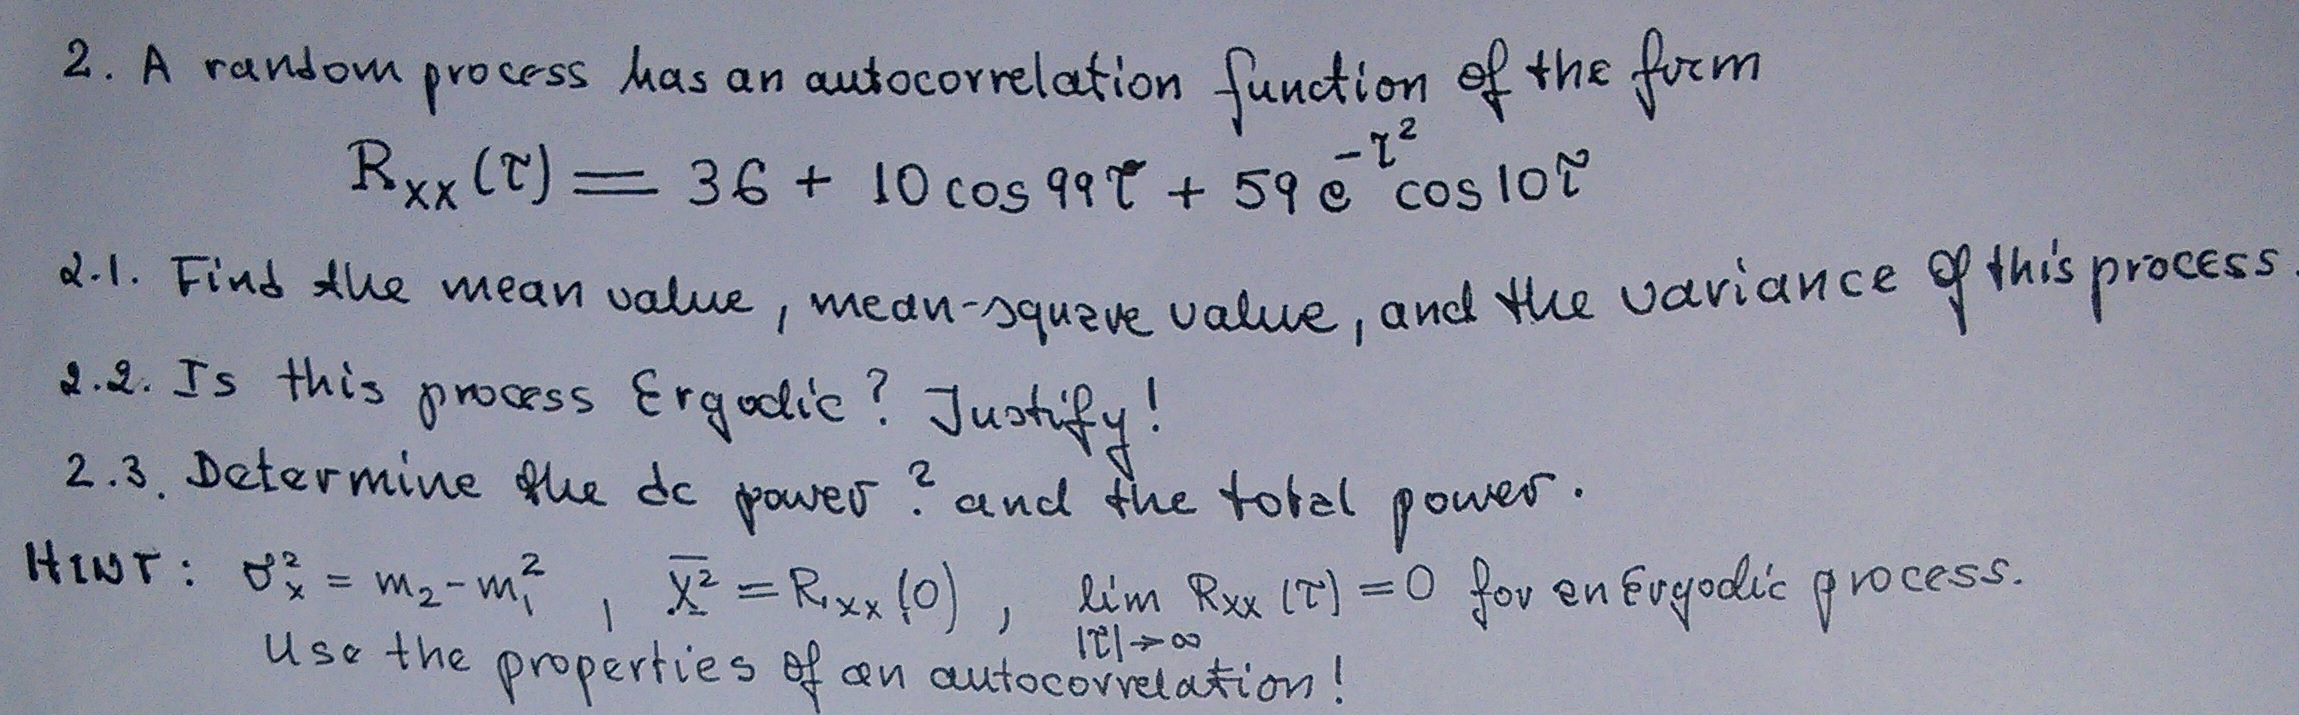 2. A random process has an autocorrelation function of the form
Rxx(τ) = 36 + 10 cos 99τ + 59 e^{-τ²} cos 10τ
2.1. Find the mean value, mean-square value, and the variance of this process.
2.2. Is this process Ergodic? Justify!
2.3. Determine the dc power? and the total power.
HINT: σx² = m₂ - m₁², X̅² = Rxx(0), lim Rxx(τ) = 0 for an Ergodic process.
|τ|→∞
Use the properties of an autocorrelation!